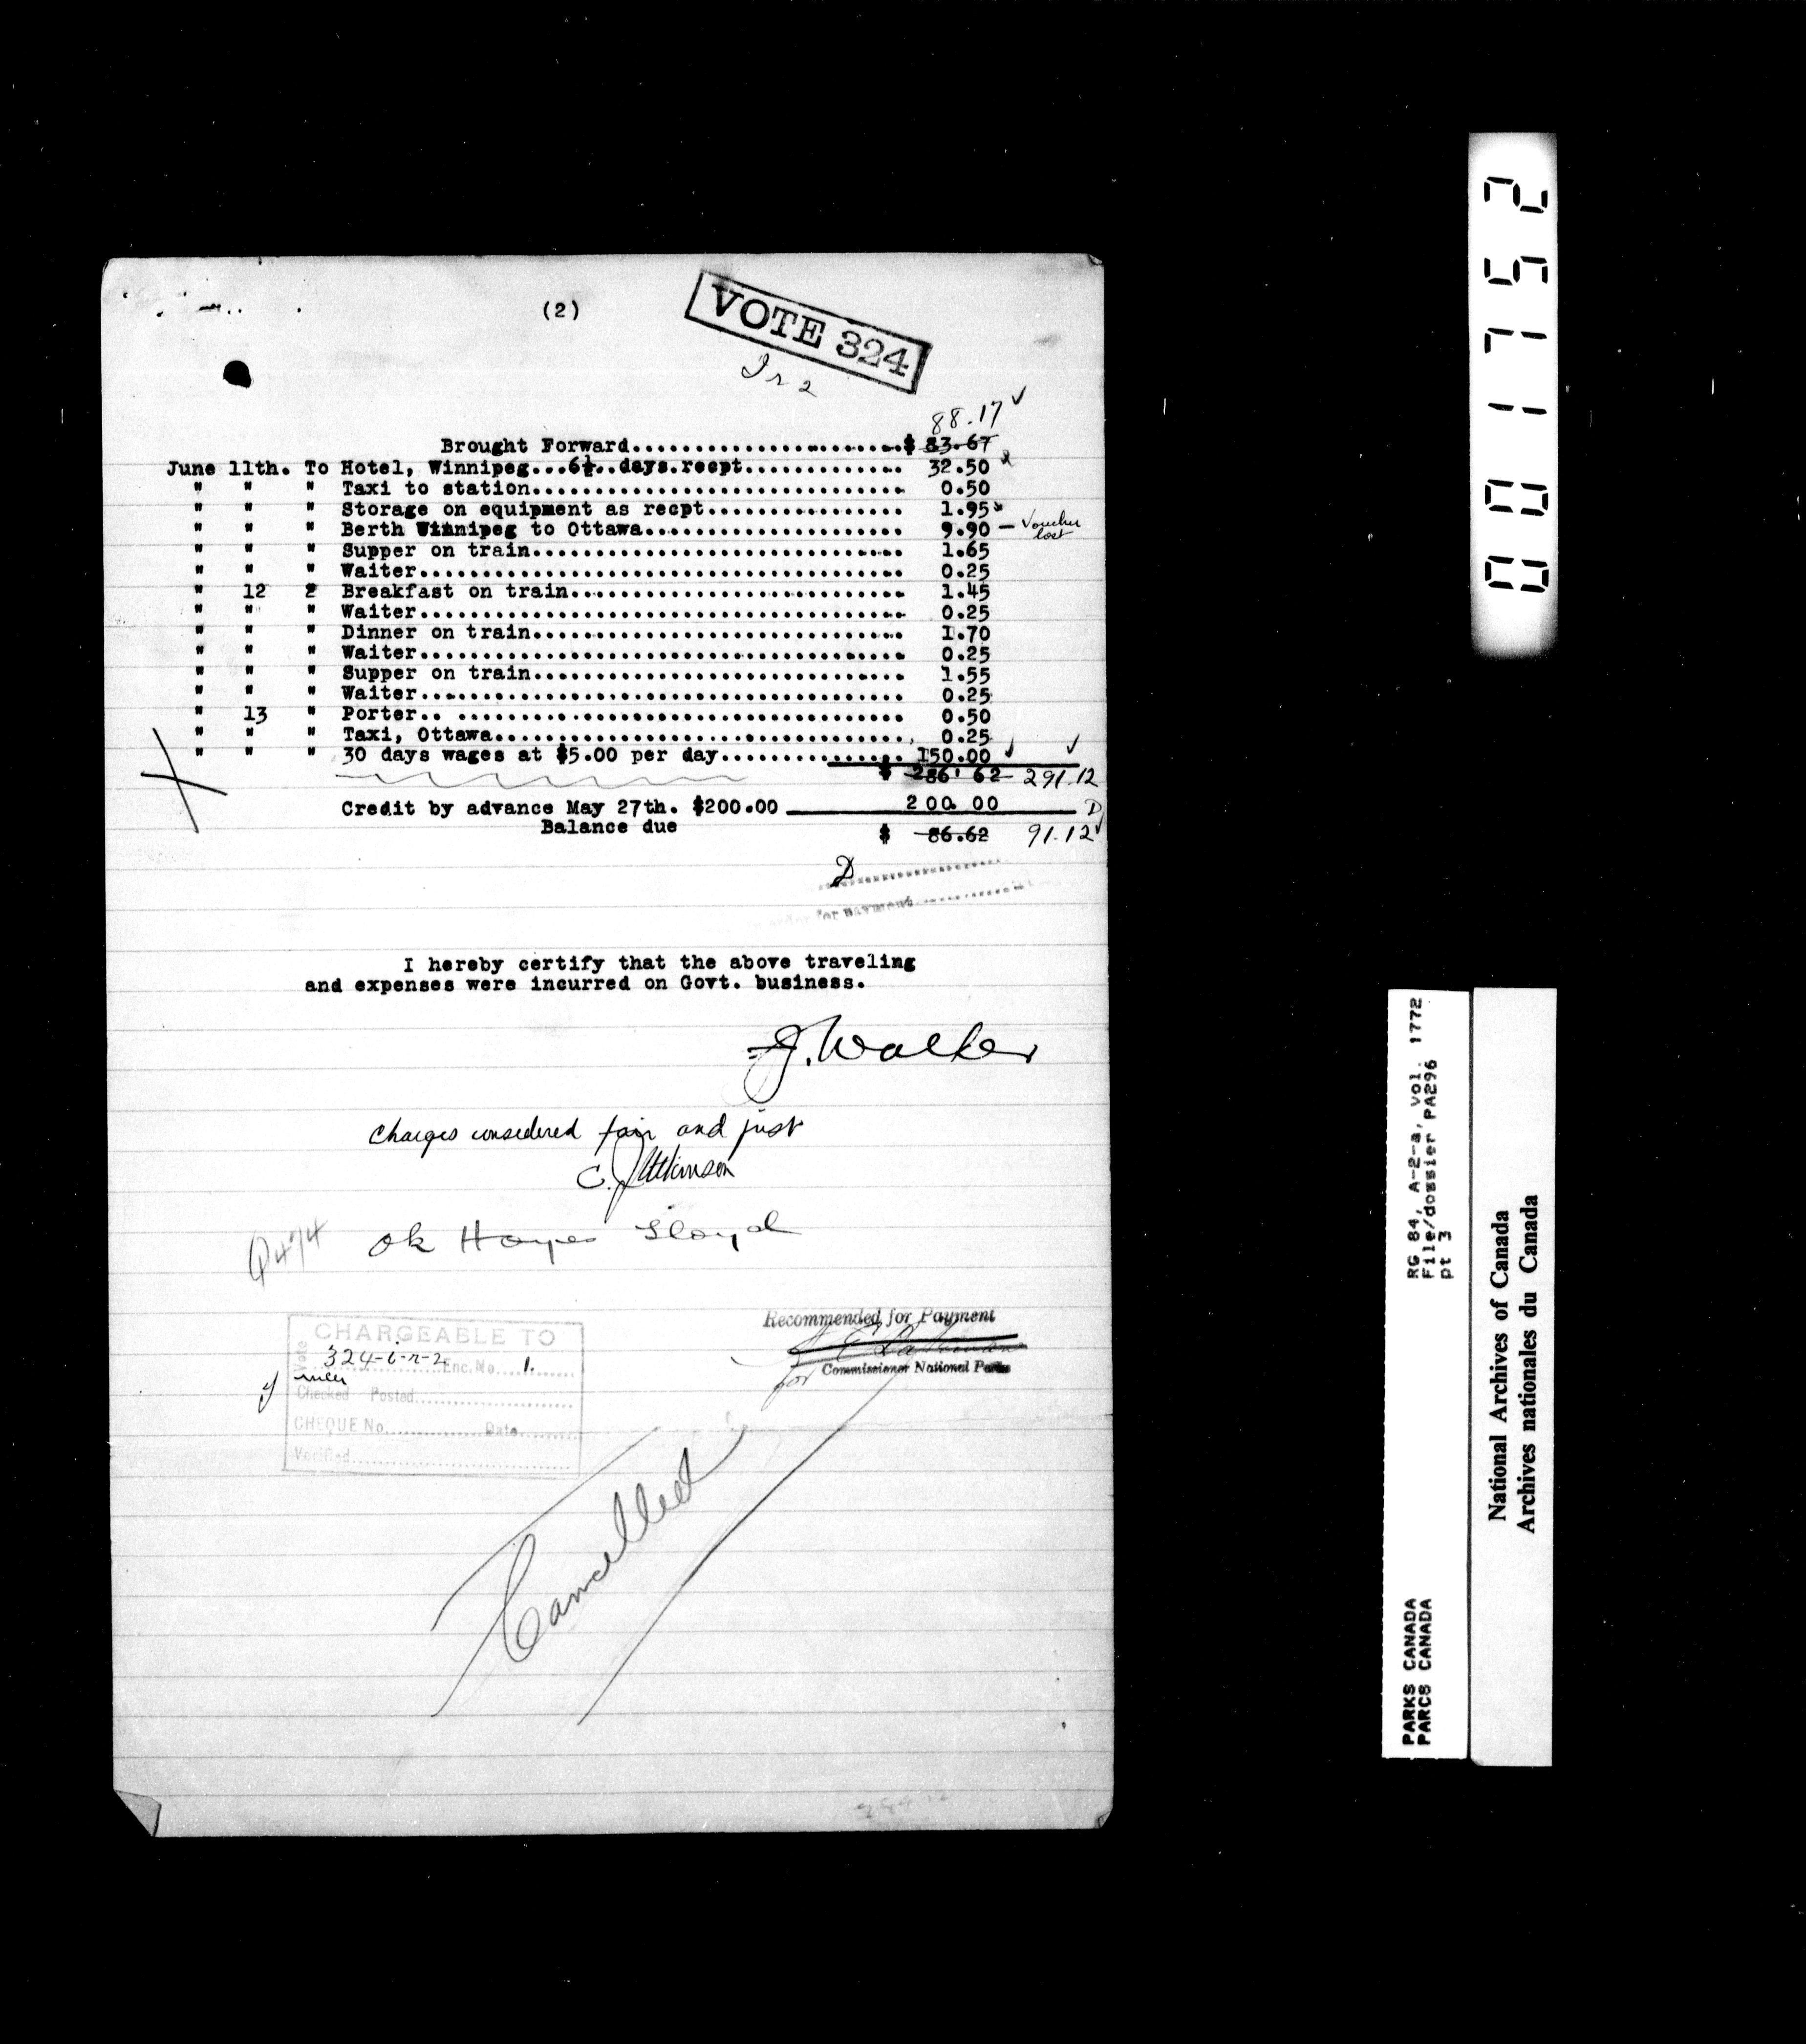 (2)
VOTE 324
88.17 ✓
Brought Forward......................$ 83.67
June 11th. To Hotel, Winnipeg...6½..days.recpt............. 32.50
" " " Taxi to station.............................. 0.50
" " " Storage on equipment as recpt................ 1.95
" " " Berth Winnipeg to Ottawa..................... 9.90 — Voucher lost
" " " Supper on train.............................. 1.65
" " " Waiter....................................... 0.25
" 12 " Breakfast on train........................... 1.45
" " " Waiter....................................... 0.25
" " " Dinner on train.............................. 1.70
" " " Waiter....................................... 0.25
" " " Supper on train.............................. 1.55
" " " Waiter....................................... 0.25
" 13 " Porter.. .................................... 0.50
" " " Taxi, Ottawa................................. 0.25
" " " 30 days wages at $5.00 per day............... 150.00 ✓ ✓
$ 286.62 291.12
Credit by advance May 27th. $200.00 200.00 D
Balance due $ 86.62 91.12 ✓
D
for payment
I hereby certify that the above traveling
and expenses were incurred on Govt. business.
J. Walker
Charges considered fair and just
C. J. Atkinson
Ok Hoyes Lloyd
Recommended for Payment
for Commissioner National Parks
CHARGEABLE TO
Vote 324-i-r-2 Enc. No. 1.
Checked Posted
CHEQUE No. Date
Verified
Cancelled
0011752
RG 84, A-2-a, vol. 1772
File/dossier PA296
pt 3
PARKS CANADA
PARCS CANADA
National Archives of Canada
Archives nationales du Canada